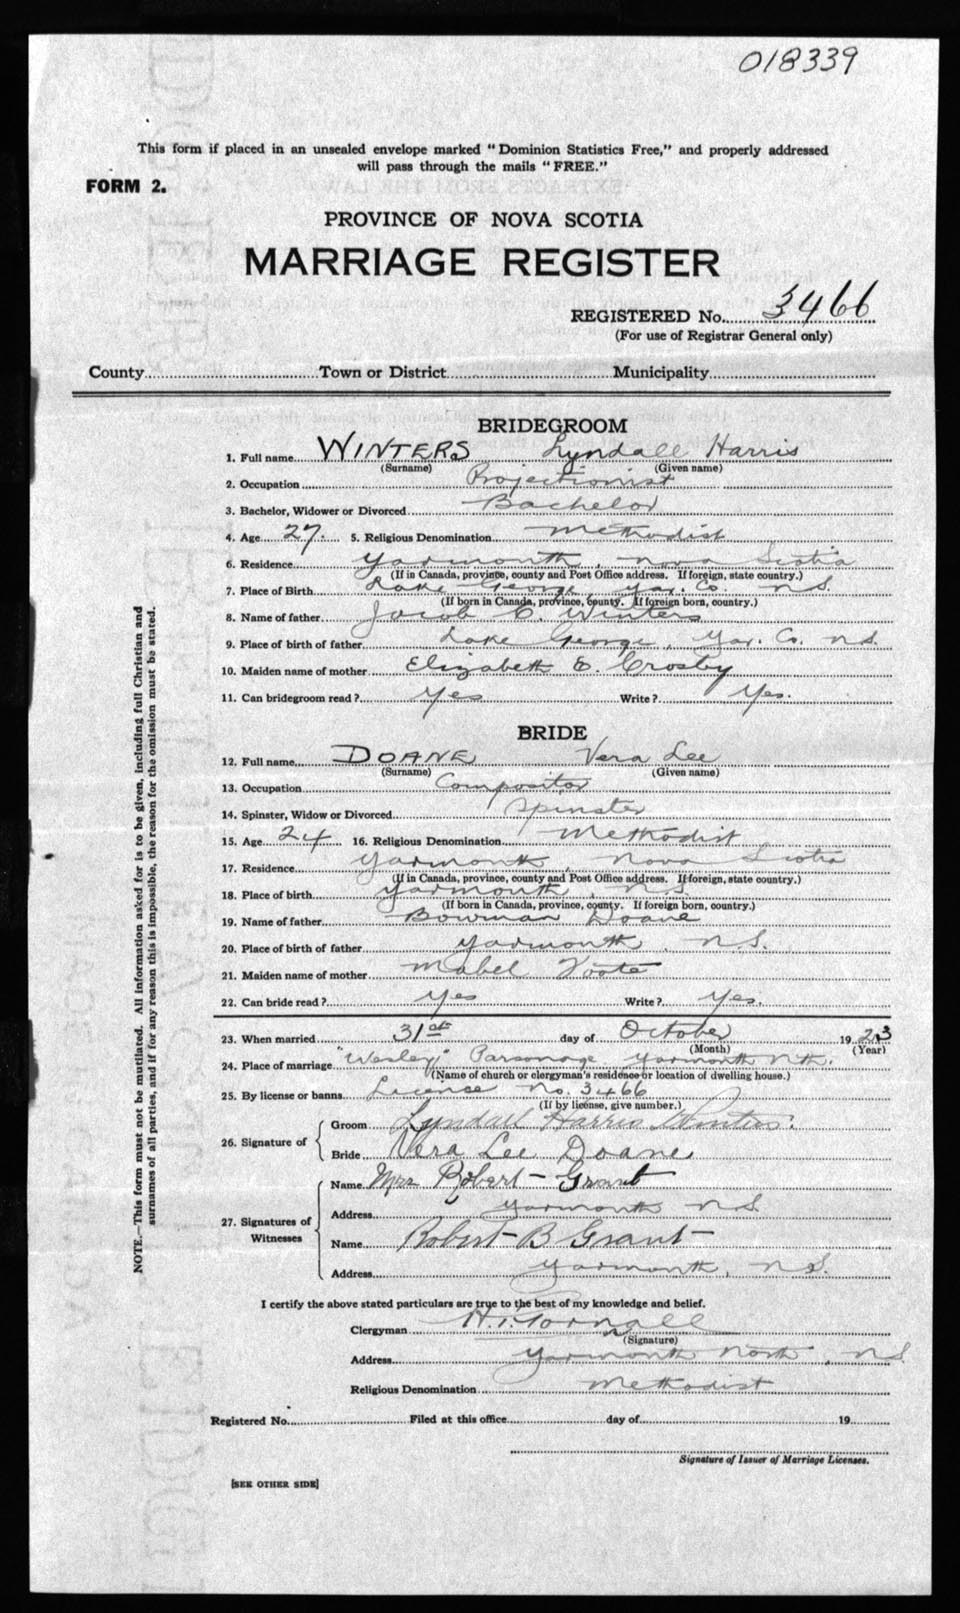 018339
This form if placed in an unsealed envelope marked "Dominion Statistics Free," and properly addressed
will pass through the mails "FREE."
FORM 2.
PROVINCE OF NOVA SCOTIA
MARRIAGE REGISTER
REGISTERED No. 3466
(For use of Registrar General only)
County Town or District Municipality
BRIDEGROOM
1. Full name WINTERS Lyndall Harris
(Surname) (Given name)
2. Occupation Projectionist
3. Bachelor, Widower or Divorced Bachelor
4. Age 27. 5. Religious Denomination Methodist
6. Residence Yarmouth, Nova Scotia
(If in Canada, province, county and Post Office address. If foreign, state country.)
7. Place of Birth Lake George, Yar. Co. N.S.
(If born in Canada, province, county. If foreign born, country.)
8. Name of father Jacob C. Winters
9. Place of birth of father Lake George, Yar. Co. N.S.
10. Maiden name of mother Elizabeth E. Crosby
11. Can bridegroom read? Yes Write? Yes.
BRIDE
12. Full name DOANE Vera Lee
(Surname) (Given name)
13. Occupation Compositor
14. Spinster, Widow or Divorced Spinster
15. Age 24 16. Religious Denomination Methodist
17. Residence Yarmouth Nova Scotia
(If in Canada, province, county and Post Office address. If foreign, state country.)
18. Place of birth Yarmouth, N.S.
(If born in Canada, province, county. If foreign born, country.)
19. Name of father Bowman Doane
20. Place of birth of father Yarmouth, N.S.
21. Maiden name of mother Mabel
22. Can bride read? Yes Write? Yes.
23. When married 31st day of October 1923
(Month) (Year)
24. Place of marriage "Wesley" Parsonage Yarmouth Nth.
(Name of church or clergyman's residence or location of dwelling house.)
25. By license or banns Licence No. 3466
(If by license, give number.)
26. Signature of Groom Lyndall Harris Winters.
Bride Vera Lee Doane
27. Signatures of Witnesses Name Mrs Robert Grant
Address Yarmouth N.S.
Name Robert B Grant
Address Yarmouth, N.S.
I certify the above stated particulars are true to the best of my knowledge and belief.
Clergyman
(Signature)
Address Yarmouth North, N.S.
Religious Denomination Methodist
Registered No. Filed at this office day of 19
Signature of Issuer of Marriage Licenses.
[SEE OTHER SIDE]
NOTE.—This form must not be mutilated. All information asked for is to be given, including full Christian and
surnames of all parties, and if for any reason this is impossible, the reason for the omission must be stated.